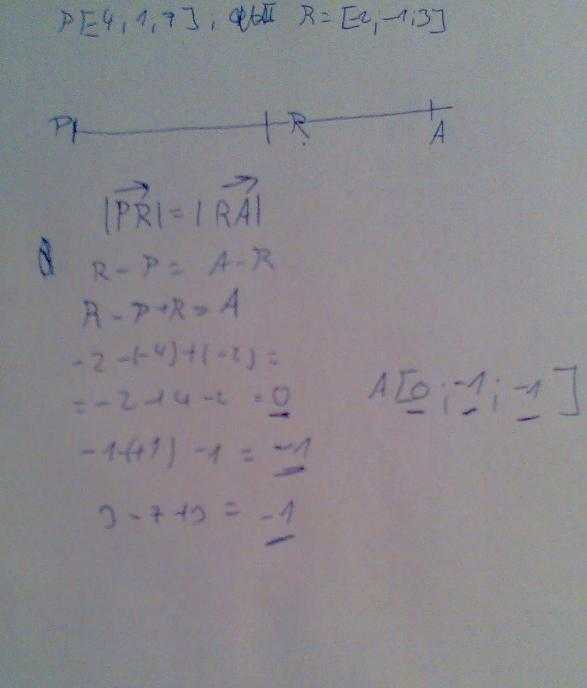 P[4, 1, 7], R = [2, -1, 3]
P R A
|PR| = |RA|
R - P = A - R
R - P + R = A
-2 - (-4) + (-2) =
= -2 + 4 - 2 = 0 A[0; -1; -1]
-1 - (+1) - 1 = -1
3 - 7 + 3 = -1